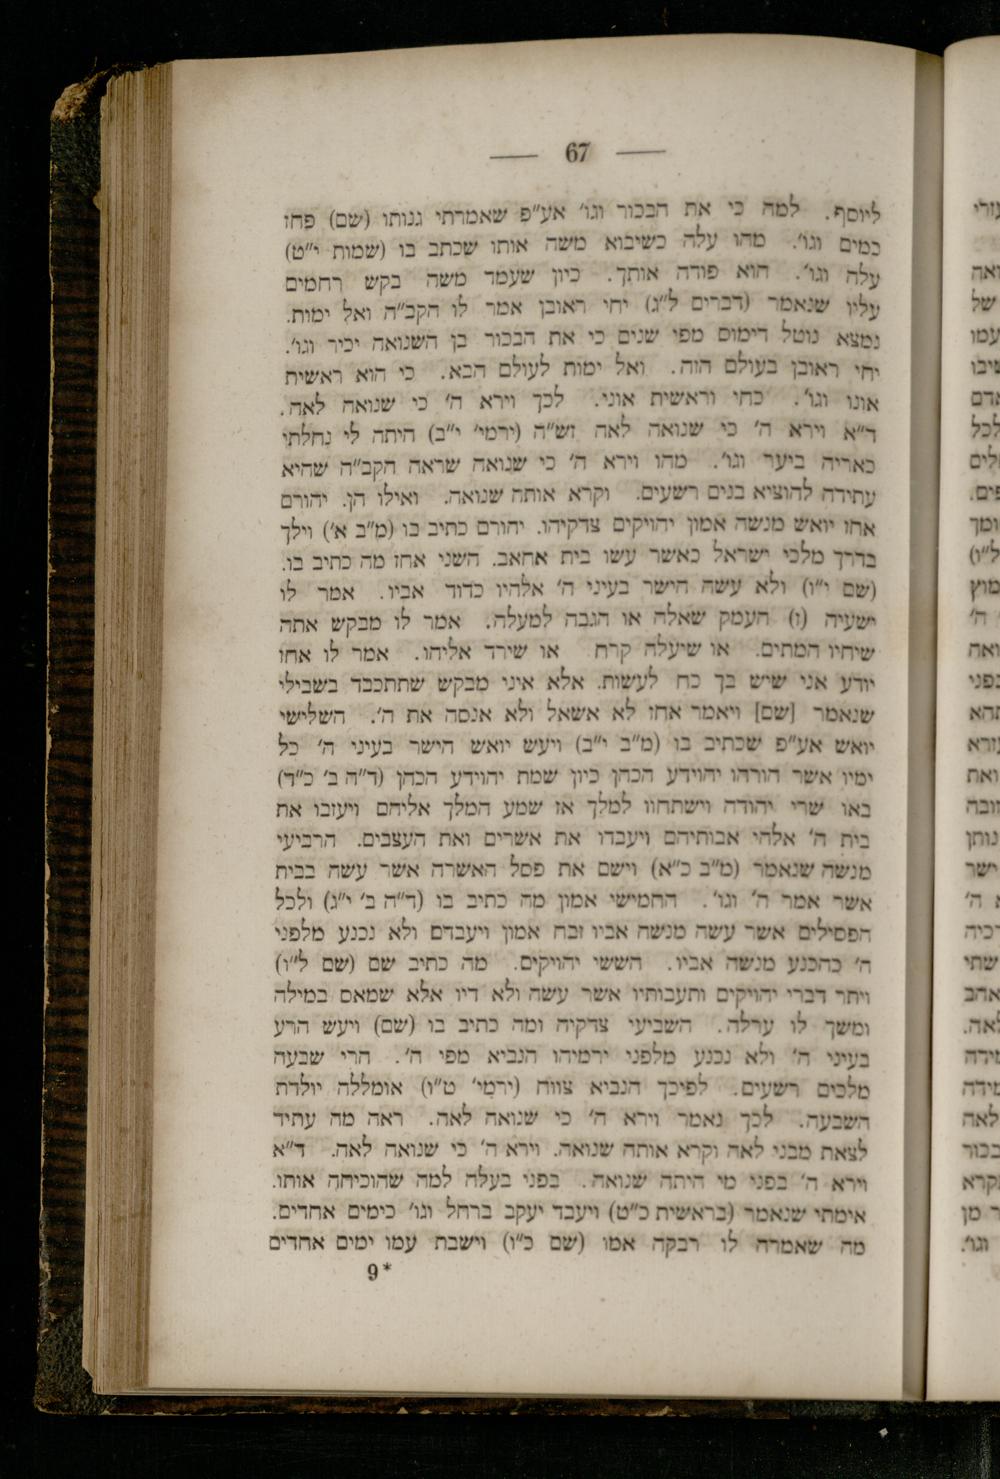 — 67 —
ליוסף. למה כי את הבכור וגו׳ אע״פ שאמרתי גנותו (שם) פחז
כמים וגו׳. מהו עלה כשיבוא משה אותו שכתב בו (שמות י״ט)
עלה וגו׳. הוא פודה אותך. כיון שעמד משה בקש רחמים
עליו שנאמר (דברים ל״ג) יחי ראובן אמר לו הקב״ה ואל ימות.
נמצא נוטל דימוס מפי שנים כי את הבכור בן השנואה יכיר וגו׳.
יחי ראובן בעולם הזה. ואל ימות לעולם הבא. כי הוא ראשית
אונו וגו׳. כחי וראשית אוני. לכך וירא ה׳ כי שנואה לאה.
ד״א וירא ה׳ כי שנואה לאה זש״ה (ירמי׳ י״ב) היתה לי נחלתי
כאריה ביער וגו׳. מהו וירא ה׳ כי שנואה שראה הקב״ה שהיא
עתידה להוציא בנים רשעים. וקרא אותה שנואה. ואילו הן. יהורם
אחז יואש מנשה אמון יהויקים צדקיהו. יהורם כתיב בו (מ״ב א׳) וילך
בדרך מלכי ישראל כאשר עשו בית אחאב. השני אחז מה כתיב בו.
(שם י״ו) ולא עשה הישר בעיני ה׳ אלהיו כדוד אביו. אמר לו
ישעיה (ז) העמק שאלה או הגבה למעלה. אמר לו מבקש אתה
שיחיו המתים. או שיעלה קרח או שירד אליהו. אמר לו אחז
יודע אני שיש בך כח לעשות. אלא איני מבקש שתתכבד בשבילי
שנאמר [שם] ויאמר אחז לא אשאל ולא אנסה את ה׳. השלישי
יואש אע״פ שכתיב בו (מ״ב י״ב) ויעש יואש הישר בעיני ה׳ כל
ימיו אשר הורהו יהוידע הכהן כיון שמת יהוידע הכהן (ד״ה ב׳ כ״ד)
באו שרי יהודה וישתחוו למלך אז שמע המלך אליהם ויעזבו את
בית ה׳ אלהי אבותיהם ויעבדו את אשרים ואת העצבים. הרביעי
מנשה שנאמר (מ״ב כ״א) וישם את פסל האשרה אשר עשה בבית
אשר אמר ה׳ וגו׳. החמישי אמון מה כתיב בו (ד״ה ב׳ י״ג) ולכל
הפסילים אשר עשה מנשה אביו זבח אמון ויעבדם ולא נכנע מלפני
ה׳ כהכנע מנשה אביו. הששי יהויקים. מה כתיב שם (שם ל״ו)
ויתר דברי יהויקים ותעבותיו אשר עשה ולא דיו אלא שמאס במילה
ומשך לו ערלה. השביעי צדקיה ומה כתיב בו (שם) ויעש הרע
בעיני ה׳ ולא נכנע מלפני ירמיהו הנביא מפי ה׳. הרי שבעה
מלכים רשעים. לפיכך הנביא צווח (ירמי׳ ט״ו) אומללה יולדת
השבעה. לכך נאמר וירא ה׳ כי שנואה לאה. ראה מה עתיד
לצאת מבני לאה וקרא אותה שנואה. וירא ה׳ כי שנואה לאה. ד״א
וירא ה׳ בפני מי היתה שנואה. בפני בעלה למה שהוכיחה אותו.
אימתי שנאמר (בראשית כ״ט) ויעבד יעקב ברחל וגו׳ כימים אחדים.
מה שאמרה לו רבקה אמו (שם כ״ו) וישבת עמו ימים אחדים
9*